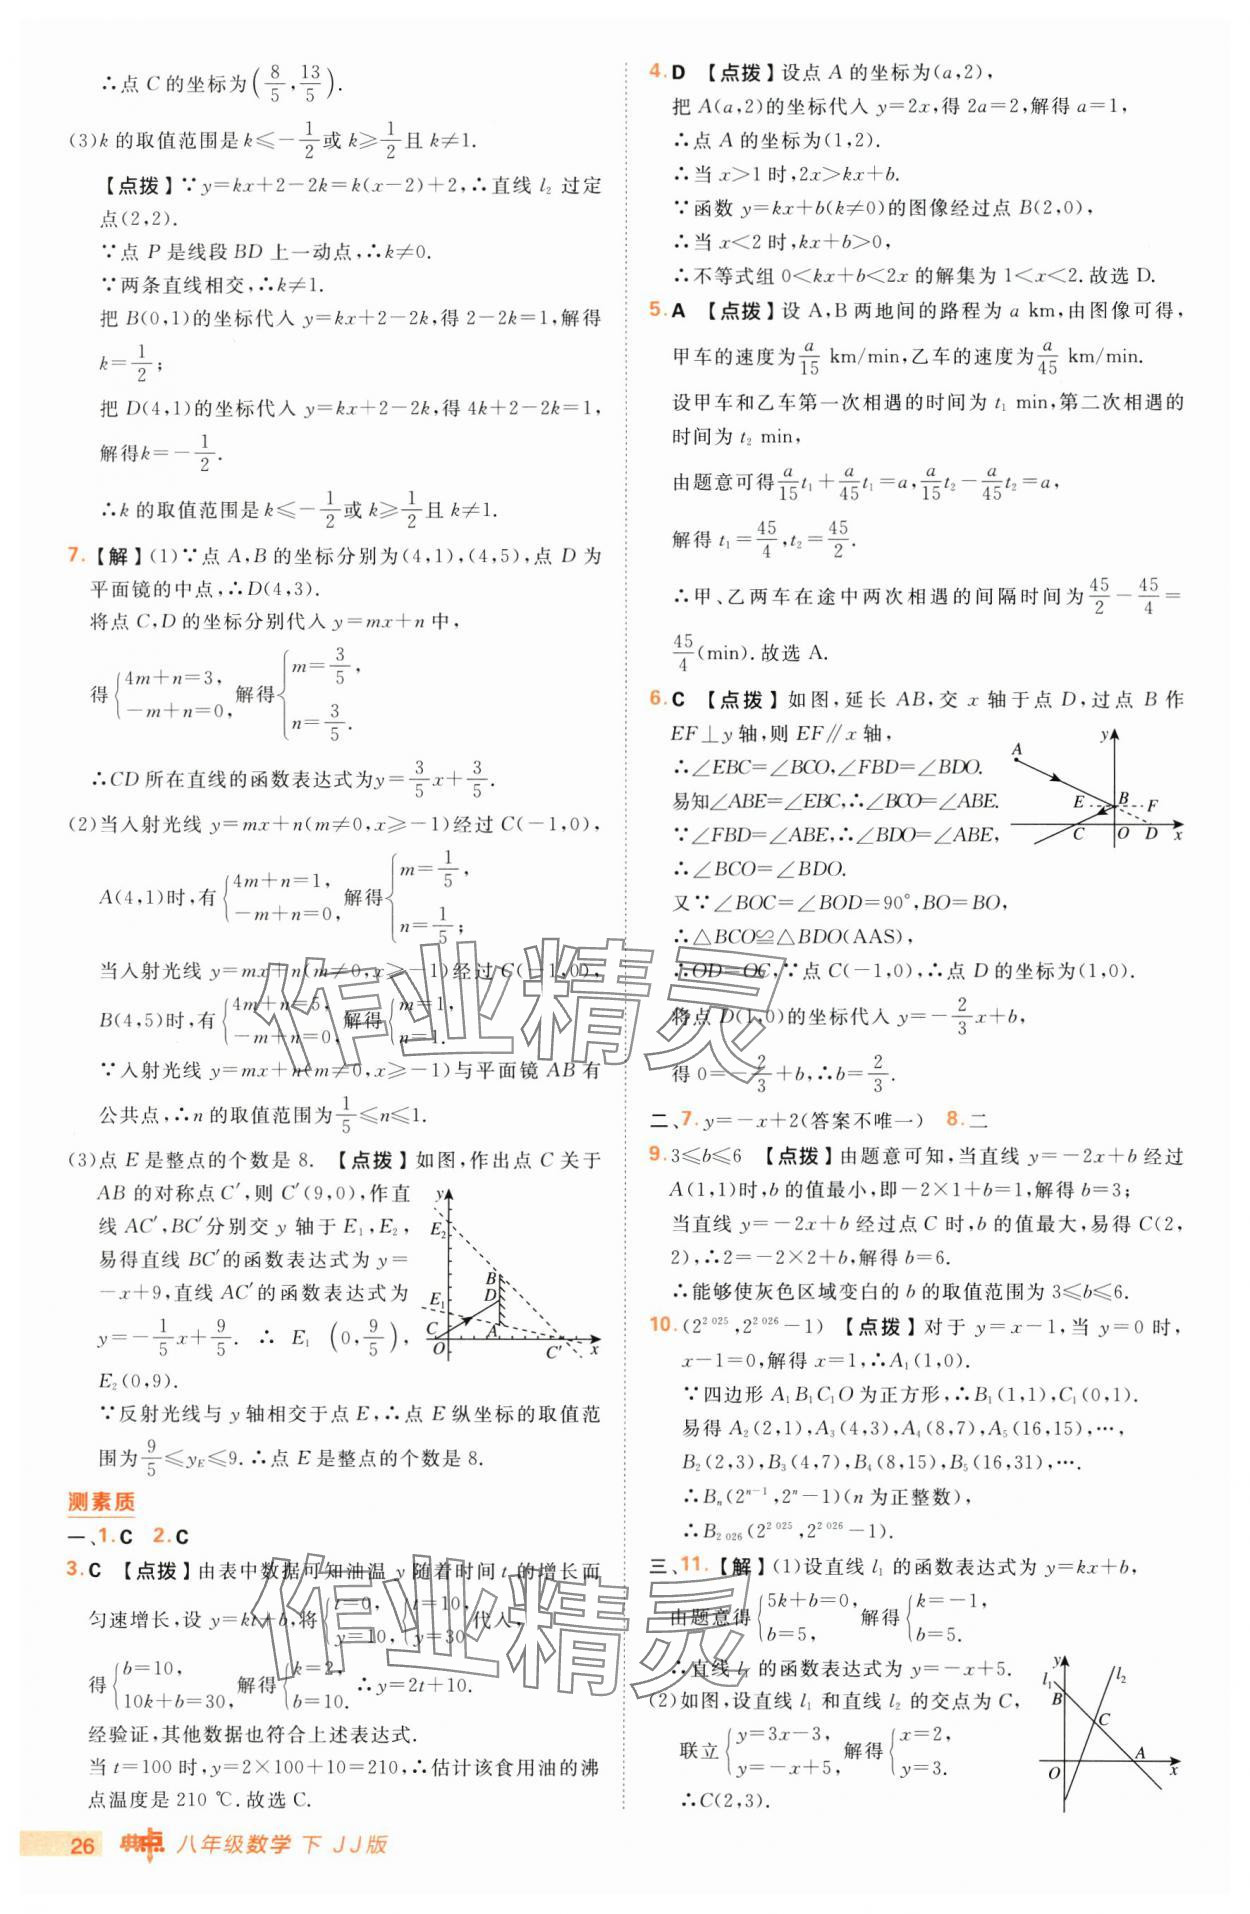 ∴点 C 的坐标为(8/5,13/5).
(3)k 的取值范围是 k≤-1/2或 k≥1/2且 k≠1.
【点拨】∵y=kx+2-2k=k(x-2)+2,∴直线 l₂ 过定
点(2,2).
∵点 P 是线段 BD 上一动点,∴k≠0.
∵两条直线相交,∴k≠1.
把 B(0,1)的坐标代入 y=kx+2-2k,得 2-2k=1,解得
k=1/2;
把 D(4,1)的坐标代入 y=kx+2-2k,得 4k+2-2k=1,
解得k=-1/2.
∴k 的取值范围是 k≤-1/2或 k≥1/2且 k≠1.
7.【解】(1)∵点 A,B 的坐标分别为(4,1),(4,5),点 D 为
平面镜的中点,∴D(4,3).
将点 C,D 的坐标分别代入 y=mx+n 中,
得{4m+n=3, -m+n=0, 解得{m=3/5, n=3/5.
∴CD 所在直线的函数表达式为y=3/5x+3/5.
(2)当入射光线 y=mx+n(m≠0,x≥-1)经过 C(-1,0),
A(4,1)时,有{4m+n=1, -m+n=0, 解得{m=1/5, n=1/5;
当入射光线 y=mx+n(m≠0,x≥-1)经过 C(-1,0),
B(4,5)时,有{4m+n=5, -m+n=0, 解得{m=1, n=1.
∵入射光线 y=mx+n(m≠0,x≥-1)与平面镜 AB 有
公共点,∴n 的取值范围为1/5≤n≤1.
(3)点 E 是整点的个数是 8. 【点拨】如图,作出点 C 关于
AB 的对称点 C′,则 C′(9,0),作直
线 AC′,BC′分别交 y 轴于 E₁,E₂,
易得直线 BC′的函数表达式为 y=
-x+9,直线 AC′的函数表达式为
y=-1/5x+9/5. ∴ E₁(0,9/5),
E₂(0,9).
y
E₂
B
D
E₁
C
A
O
C′
x
∵反射光线与 y 轴相交于点 E,∴点 E 纵坐标的取值范
围为9/5≤y_E≤9.∴点 E 是整点的个数是 8.
测素质
一、1.C 2.C
3.C 【点拨】由表中数据可知油温 y 随着时间 t 的增长而
匀速增长,设 y=kt+b,将{t=0, y=10, {t=10, y=30代入,
得{b=10, 10k+b=30, 解得{k=2, b=10. ∴y=2t+10.
经验证,其他数据也符合上述表达式.
当 t=100 时,y=2×100+10=210,∴估计该食用油的沸
点温度是 210 ℃.故选 C.
4.D 【点拨】设点 A 的坐标为(a,2),
把 A(a,2)的坐标代入 y=2x,得 2a=2,解得 a=1,
∴点 A 的坐标为(1,2).
∴当 x>1 时,2x>kx+b.
∵函数 y=kx+b(k≠0)的图像经过点 B(2,0),
∴当 x<2 时,kx+b>0,
∴不等式组 0<kx+b<2x 的解集为 1<x<2.故选 D.
5.A 【点拨】设 A,B 两地间的路程为 a km,由图像可得,
甲车的速度为a/15 km/min,乙车的速度为a/45 km/min.
设甲车和乙车第一次相遇的时间为 t₁ min,第二次相遇的
时间为 t₂ min,
由题意可得a/15t₁+a/45t₁=a,a/15t₂-a/45t₂=a,
解得 t₁=45/4,t₂=45/2.
∴甲、乙两车在途中两次相遇的间隔时间为45/2-45/4=
45/4(min).故选 A.
6.C 【点拨】如图,延长 AB,交 x 轴于点 D,过点 B 作
EF⊥y 轴,则 EF∥x 轴,
∴∠EBC=∠BCO,∠FBD=∠BDO.
易知∠ABE=∠EBC,∴∠BCO=∠ABE.
∵∠FBD=∠ABE,∴∠BDO=∠ABE,
∴∠BCO=∠BDO.
y
A
E
B
F
C
O
D
x
又∵∠BOC=∠BOD=90°,BO=BO,
∴△BCO≌△BDO(AAS),
∴OD=OC,∵点 C(-1,0),∴点 D 的坐标为(1,0).
将点 D(1,0)的坐标代入 y=-2/3x+b,
得 0=-2/3+b,∴b=2/3.
二、7.y=-x+2(答案不唯一) 8.二
9.3≤b≤6 【点拨】由题意可知,当直线 y=-2x+b 经过
A(1,1)时,b 的值最小,即-2×1+b=1,解得 b=3;
当直线 y=-2x+b 经过点 C 时,b 的值最大,易得 C(2,
2),∴2=-2×2+b,解得 b=6.
∴能够使灰色区域变白的 b 的取值范围为 3≤b≤6.
10.(2^2 025,2^2 026-1) 【点拨】对于 y=x-1,当 y=0 时,
x-1=0,解得 x=1,∴A₁(1,0).
∵四边形 A₁B₁C₁O 为正方形,∴B₁(1,1),C₁(0,1).
易得 A₂(2,1),A₃(4,3),A₄(8,7),A₅(16,15),…,
B₂(2,3),B₃(4,7),B₄(8,15),B₅(16,31),….
∴Bₙ(2^n-1,2^n-1)(n 为正整数),
∴B₂ ₀₂₆(2^2 025,2^2 026-1).
三、11.【解】(1)设直线 l₁ 的函数表达式为 y=kx+b,
由题意得{5k+b=0, b=5, 解得{k=-1, b=5.
∴直线 l₁ 的函数表达式为 y=-x+5.
(2)如图,设直线 l₁ 和直线 l₂ 的交点为 C,
联立{y=3x-3, y=-x+5, 解得{x=2, y=3.
∴C(2,3).
y
l₁
l₂
B
C
A
O
x
作业精灵
作业精灵
26 典点 八年级数学 下 JJ版